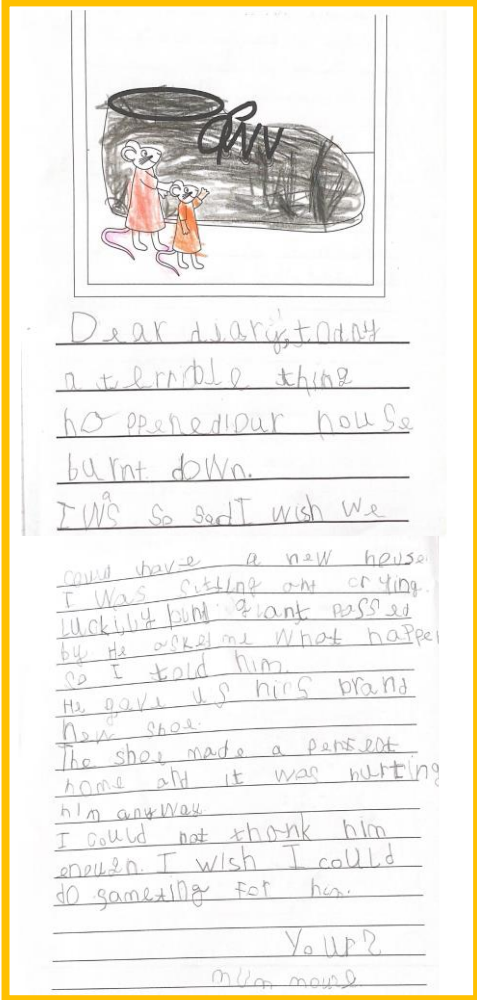 Dear diary, today
a terrible thing
hoppened!our house
burnt down.
I was so sad I wish we
could have a new house
I was sitting and crying.
luckily giant possed
by He asked me what happen
so I told him.
He gave us hiss brand
new shoe.
The shoe made a perfect
home and it was hurting
him anyway.
I could not thank him
enough. I wish I could
do someting for him.
Yours
mum mouse